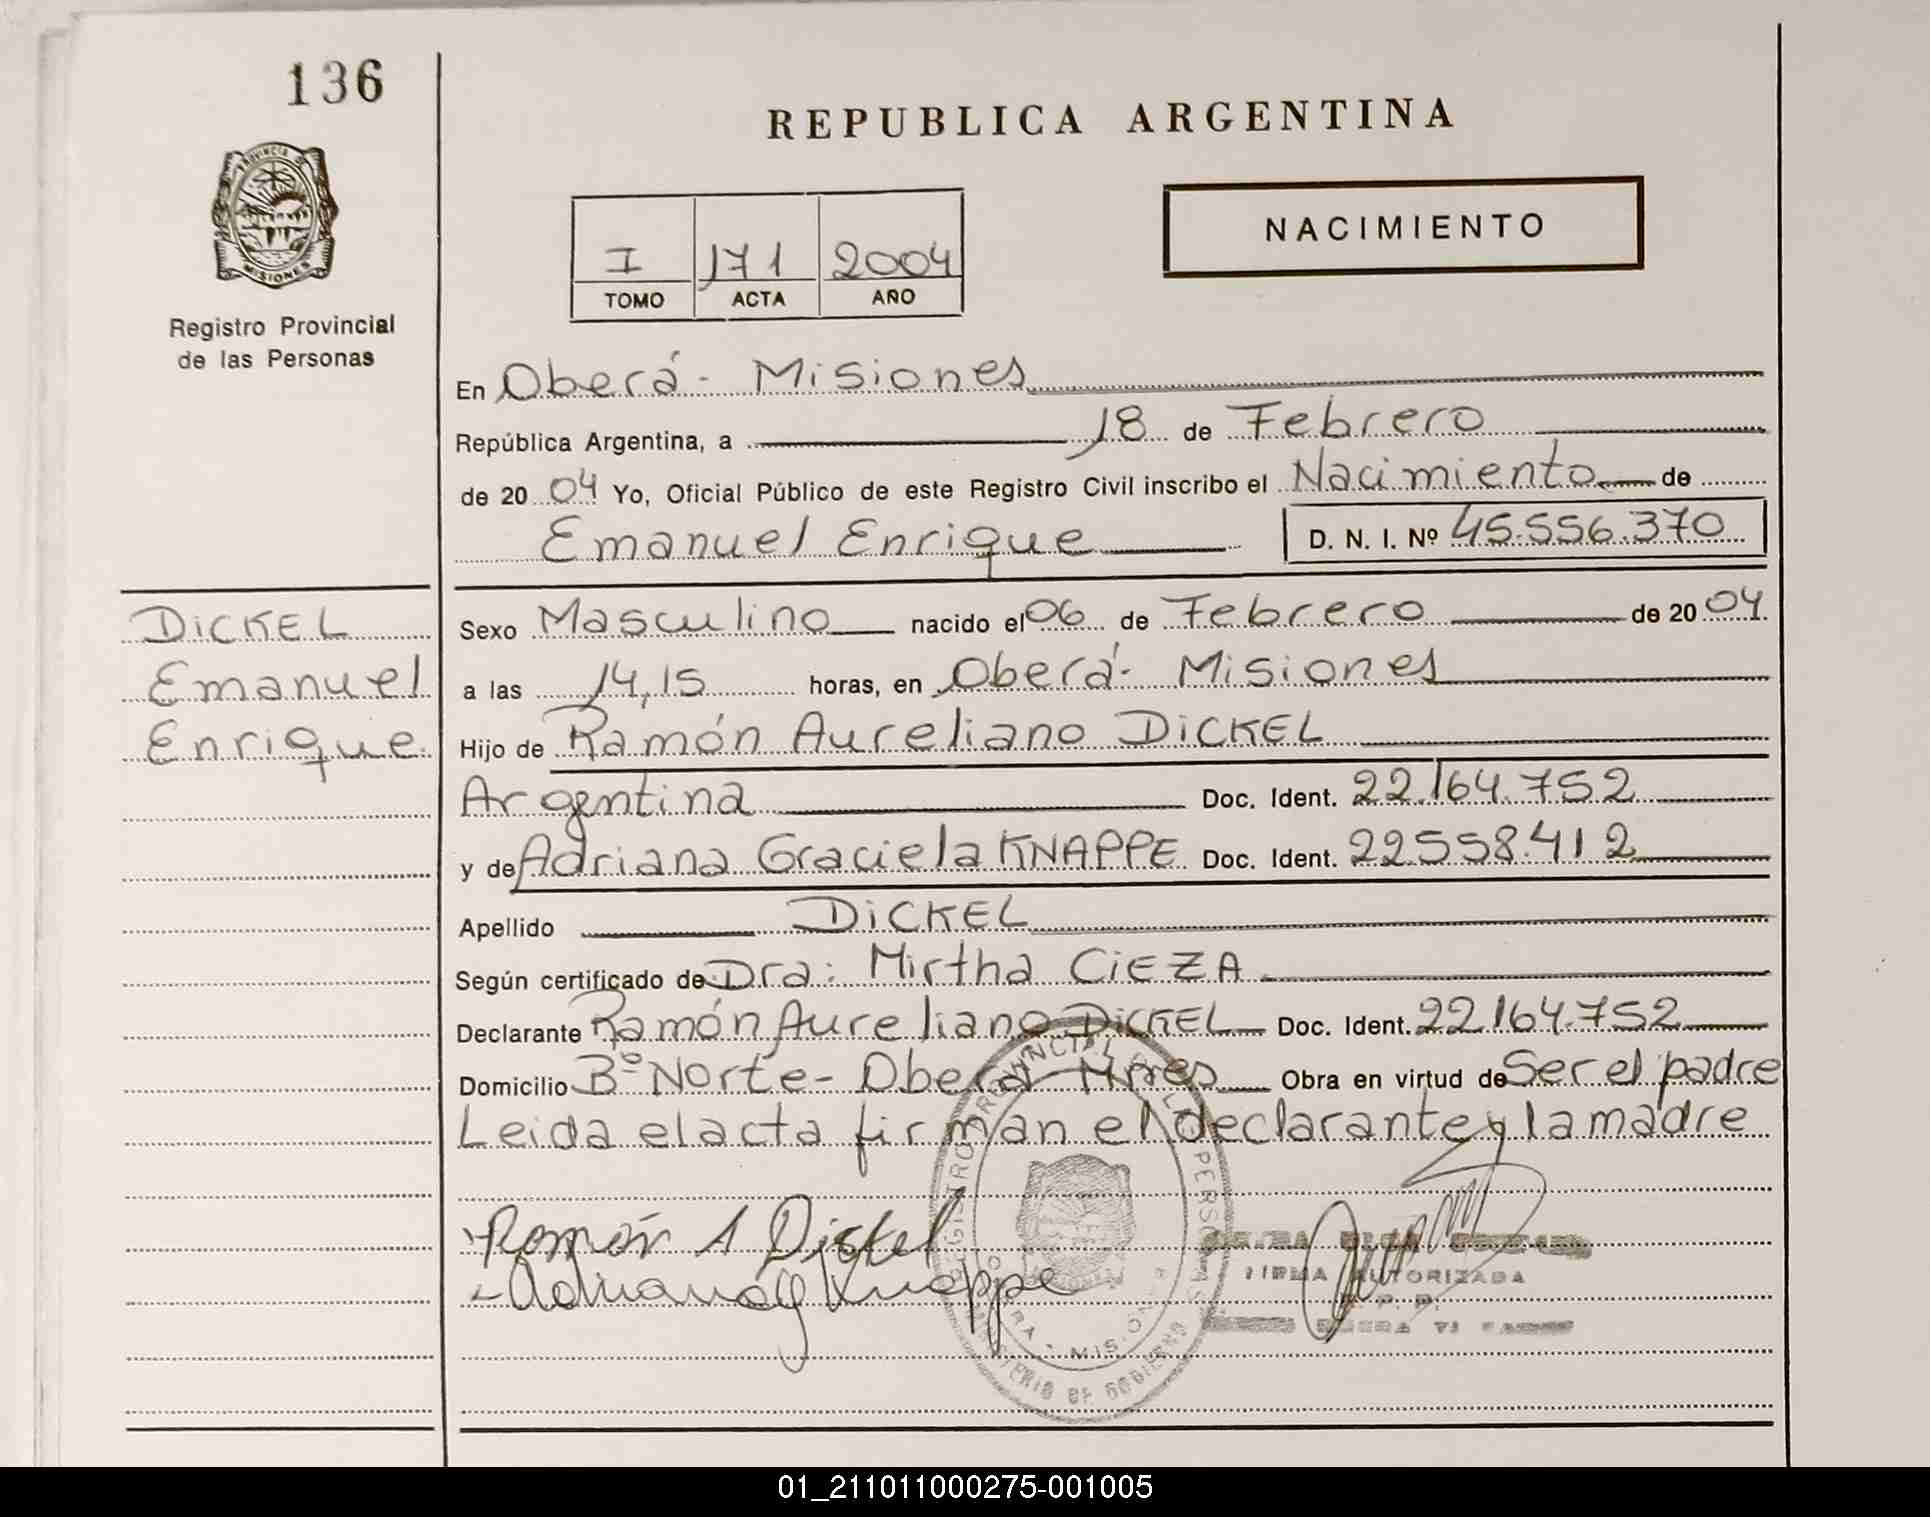 136
REPUBLICA ARGENTINA
PROVINCIA DE
MISIONES
Registro Provincial
de las Personas
NACIMIENTO
I 171 2004
TOMO ACTA AÑO
En Oberá - Misiones
República Argentina, a 18 de Febrero
de 2004 Yo, Oficial Público de este Registro Civil inscribo el Nacimiento de
Emanuel Enrique D. N. I. Nº 45.556.370
DiCKEL
Emanuel
Enrique
Sexo Masculino nacido el 06 de Febrero de 2004
a las 14,15 horas, en Oberá - Misiones
Hijo de Ramón Aureliano DiCKEL
Argentina Doc. Ident. 22.164.752
y de Adriana Graciela KNAPPE Doc. Ident. 22.558.412
Apellido DiCKEL
Según certificado de Dra: Mirtha CiEZA
Declarante Ramón Aureliano DiCKEL Doc. Ident. 22.164.752
Domicilio Bº Norte - Oberá Mnes Obra en virtud de Ser el padre
Leida el acta firman el declarante y la madre
Ramón A Dickel
Adriana G Knappe
FIRMA AUTORIZADA
01_211011000275-001005